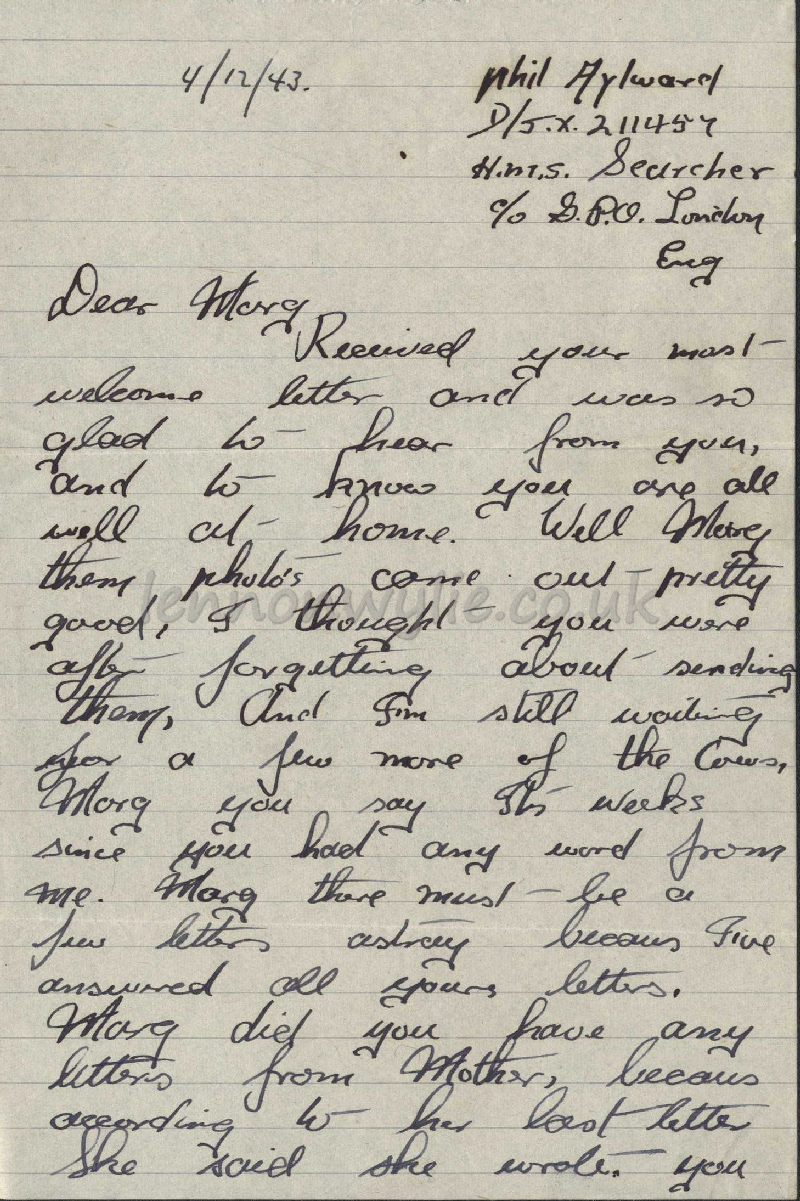 4/12/43.
Phil Aylward
D/J.X. 211457
H.M.S. Searcher
c/o G.P.O. London
Eng
Dear Marg
Received your most
welcome letter and was so
glad to hear from you,
and to know you are all
well at home. Well Marg
them photo's came out pretty
good, I thought you were
after forgetting about sending
them, And I'm still waiting
for a few more of the Cows,
Marg you say It's weeks
since you had any word from
me. Marg there must be a
few letters astray becaus I've
answered all yours letters.
Marg did you have any
letters from Mother, becaus
according to her last letter
She said she wrote you
lennonwylie.co.uk